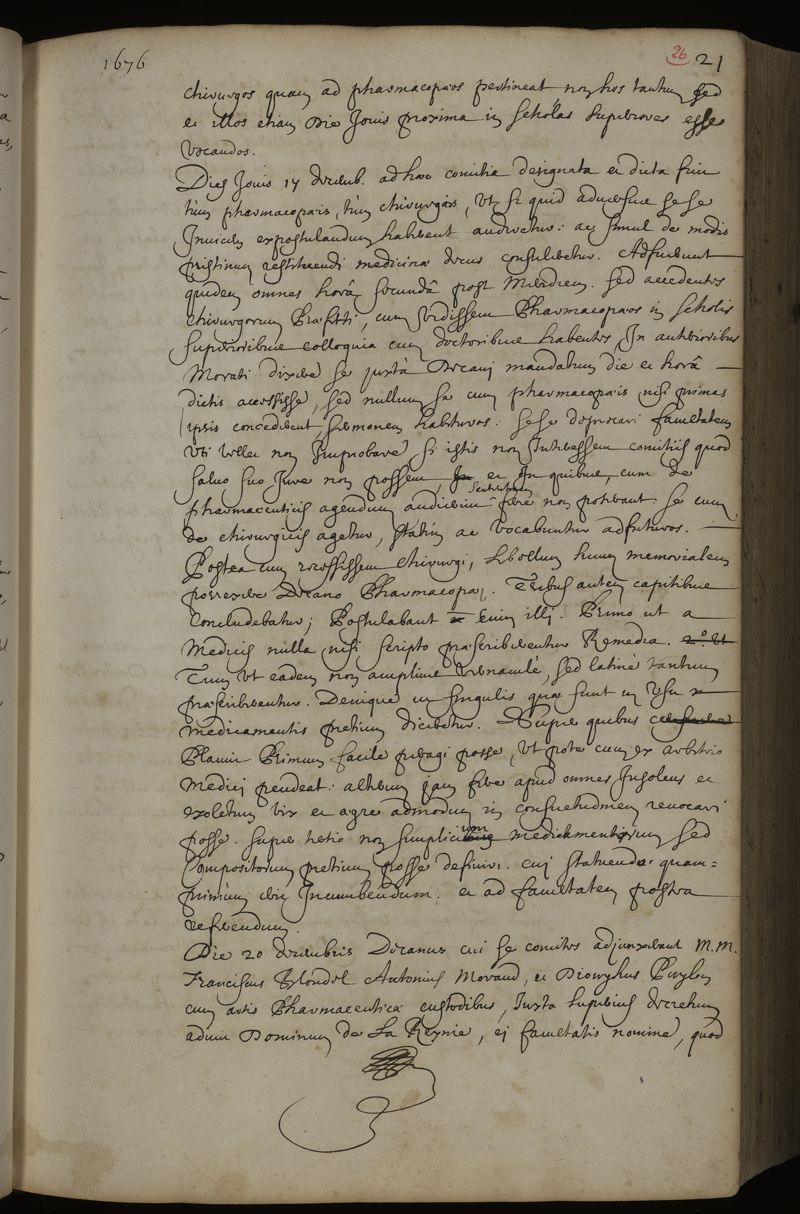 1676
26
21
chirurgos quam ad pharmacopæos pertineat non hos tantum sed
et illos etiam Die Jovis proxima in scholas superiores esse
vocandos.
Dies Jovis 17 decemb. ad hæc comitia designata et dicta fuit
tùm pharmacopæis, tùm chirurgis, ut si quid adversum sese
Invicem expostulandum haberent audiretur: ac simul de modis
pristinum restituendi medicinæ decus consuleretur. Adfuerunt
quidem omnes horâ secundâ post Meridiem. sed accedentes
chirurgorum Præfecti, cum vidissent Pharmacopæos in scholis
superioribus colloquia cum doctoribus habentes In anterioribus
Morati dixere se juxtà Decani mandatum die et horâ
dictis accessisse, sed nullum se cum pharmacopæis nisi primas
ipsis concederent sermonem habituros: sese deprecari facultatem
uti vellet non Improbare si istis non Interessent comitiis quod
salvo suo Jure non possent, et In quibus, cum de
pharmaceuticis agendum audierint sententiam fere non poterant. se cum
de chirurgicis agetur, statim ac vocabuntur adfuturos.
Postea cum recessissent chirurgi, Libellum hunc memorialem
porrexere Decano Pharmacopæi. Tribus autem capitibus
concludebatur; Postulabant enim illi. Primo ut a
Medicis nulla nisi scripto præscriberentur Remedia. 2º Ut
Tum ut eadem non amplius vernaculè, sed latinè tantum
præscriberentur. Denique ut singulis quæ sunt in usu
medicamentis pretium diceretur. Super quibus censuere
Placuit Primum facile peragi posse, ut pote cum ex arbitrio
Medici pendeat: alterum jam fere apud omnes Insolens et
exoletum vix et ægre admodum in consuetudinem revocari
posse. super tertio non simplicium medicamentorum sed
Compositorum pretium posse definiri. cui statuendo quam=
primum ibi Incumbendum. et ad facultatem postea
referendum.
Die 20 decembris Decanus cui se comites adjunxerant M.M.
Franciscus Blondel Antonius Morand, et Dionysius Puylon
cum artis Pharmaceuticæ custodibus, Juxta superius decretum
adiit Dominum de La Reynie, ei facultatis nomine, quod